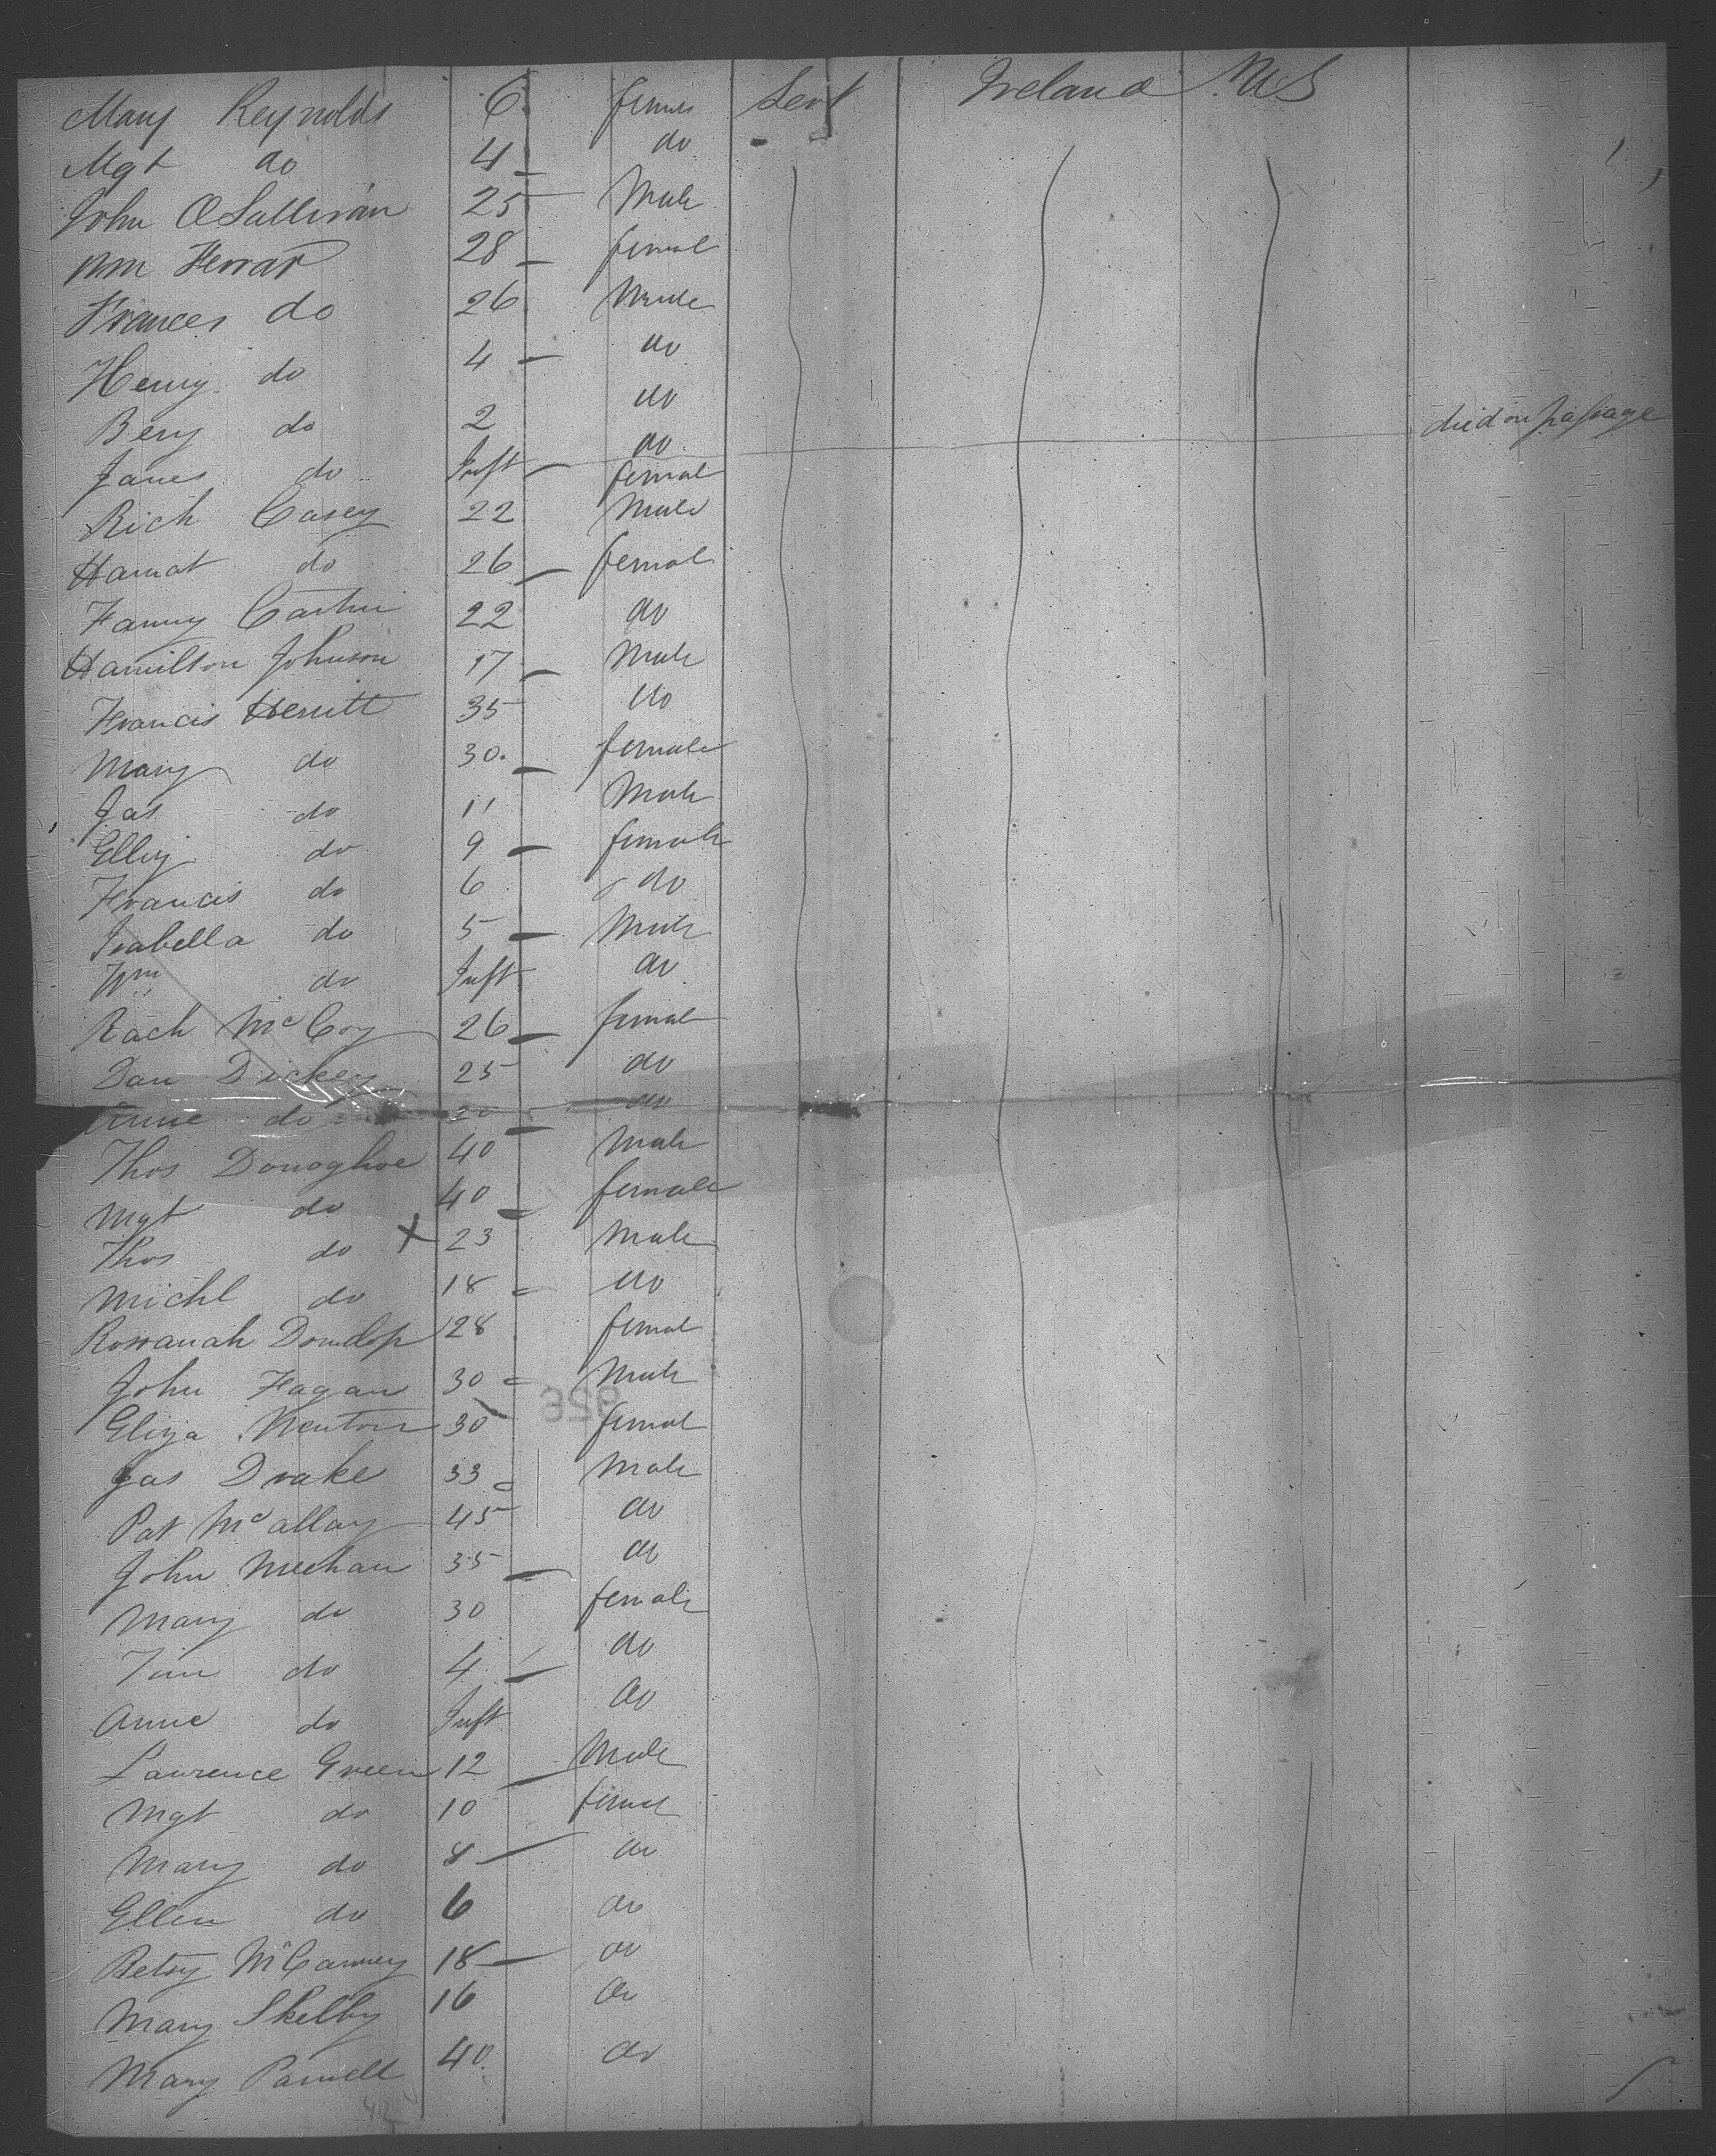 Mary Reynolds 6 female Servt Ireland U S
Mgt do 4 do
John OSullivan 25 Male
Wm Ferrar 28 female
Frances do 26 Male
Henry do 4 do
Beny do 2 do
James do Inft do died on passage
female
Rich Casey 22 Male
Harriat do 26 female
Fanny 22 do
Hamilton Johnson 17 Male
Francis Herritt 35 do
Mary do 30. female
Jas do 11 Male
Elliz do 9 female
Francis do 6 do
Isabella do 5 Male
Wm do Inft do
Rach McCoy 26 female
Dan Dickey 25 do
Anne do 20 do
Thos Donoghoe 40 Male
Mgt do 40 female
Thos do X 23 Male
Michl do 18 do
Rosranah Dundop 28 female
John Fagan 30 Male
Eliza Newton 30 female
Jas Drake 33 Male
Pat McAllay 45 do
John Meehan 35 do
Mary do 30 female
Jane do 4 do
Anne do Inft do
Lawrence Green 12 Male
Mgt do 10 female
Mary do 8 do
Ellen do 6 do
Betsy McCanney 18 do
Mary Skelby 16 do
Mary Parnell 40 do